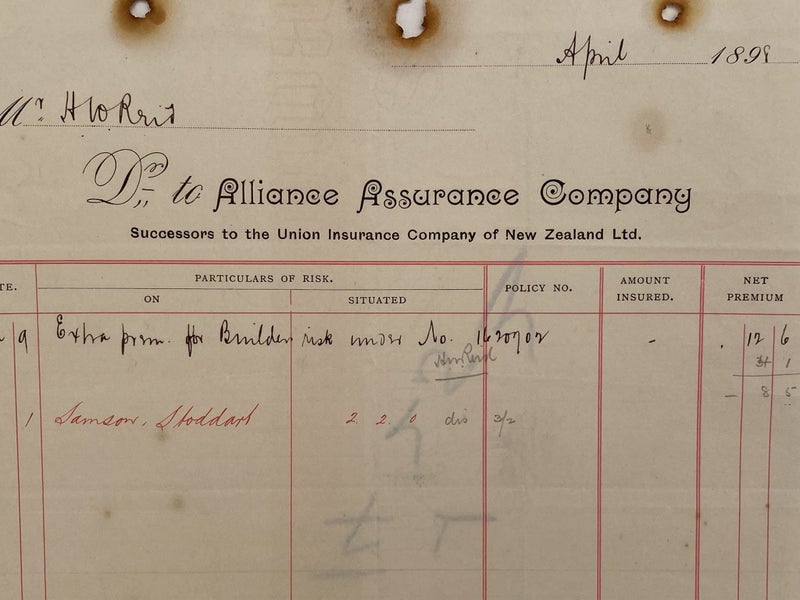 April 1898
Mr. H W Reid
Dr. to Alliance Assurance Company
Successors to the Union Insurance Company of New Zealand Ltd.
TE. PARTICULARS OF RISK. POLICY NO. AMOUNT INSURED. NET PREMIUM
ON SITUATED
9 Extra prem. for Builders risk under No. 1620902 - . 12 6
HW Reid 1
- 8 5
1 Samson, Stoddart 2. 2. 0 dis 3/2